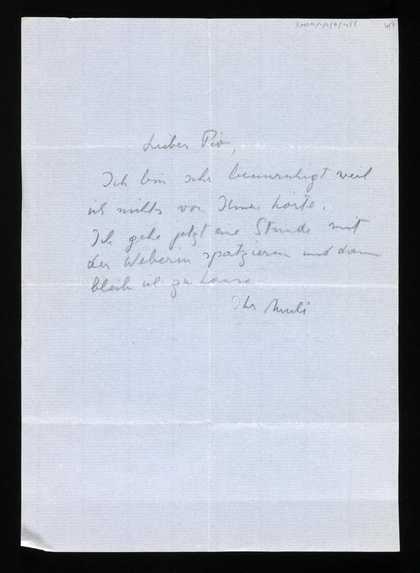 Lieber Pio,
Ich bin sehr beunruhigt weil
ich nichts von Ihnen hörte.
Ich gehe jetzt eine Stunde mit
der Weberin spatzieren und dann
bleib ich zu Hause
Ihr